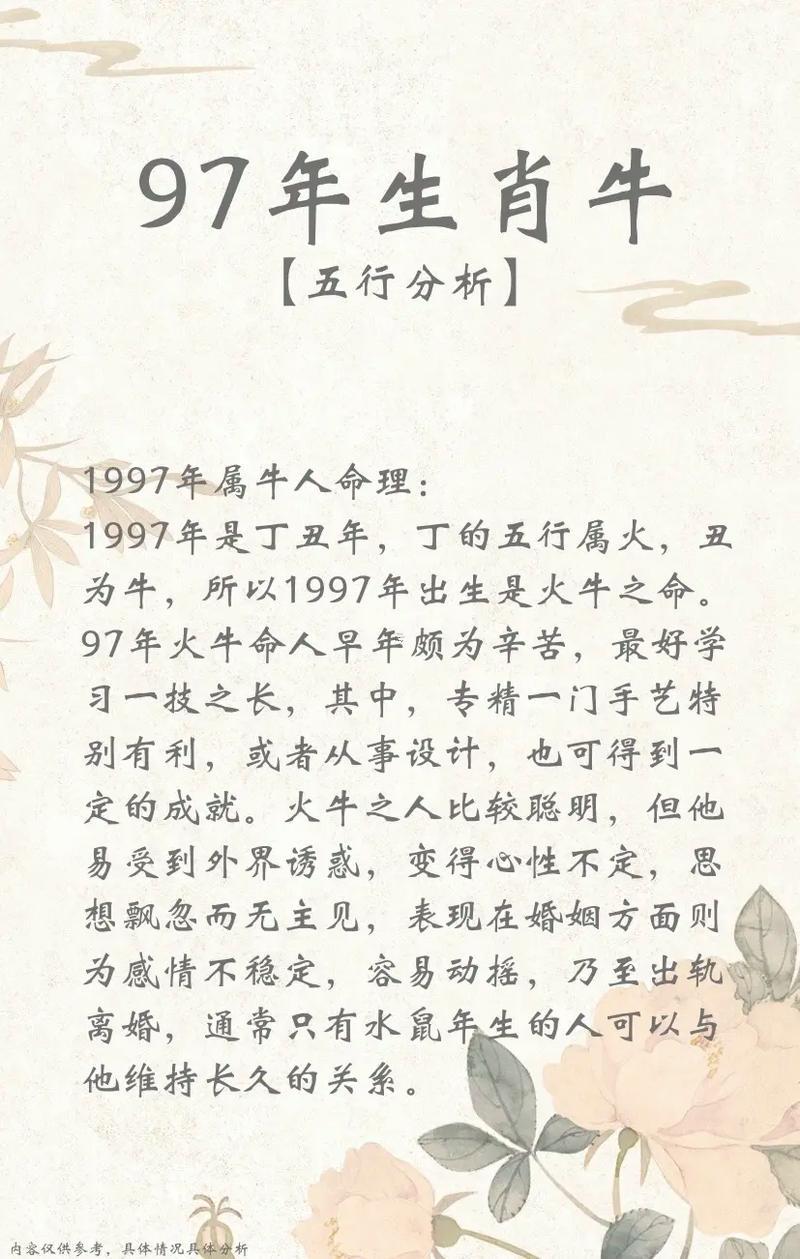 97年生肖牛
【五行分析】
1997年属牛人命理：
1997年是丁丑年，丁的五行属火，丑
为牛，所以1997年出生是火牛之命。
97年火牛命人早年颇为辛苦，最好学
习一技之长，其中，专精一门手艺特
别有利，或者从事设计，也可得到一
定的成就。火牛之人比较聪明，但他
易受到外界诱惑，变得心性不定，思
想飘忽而无主见，表现在婚姻方面则
为感情不稳定，容易动摇，乃至出轨
离婚，通常只有水鼠年生的人可以与
他维持长久的关系。
内容仅供参考，具体情况具体分析